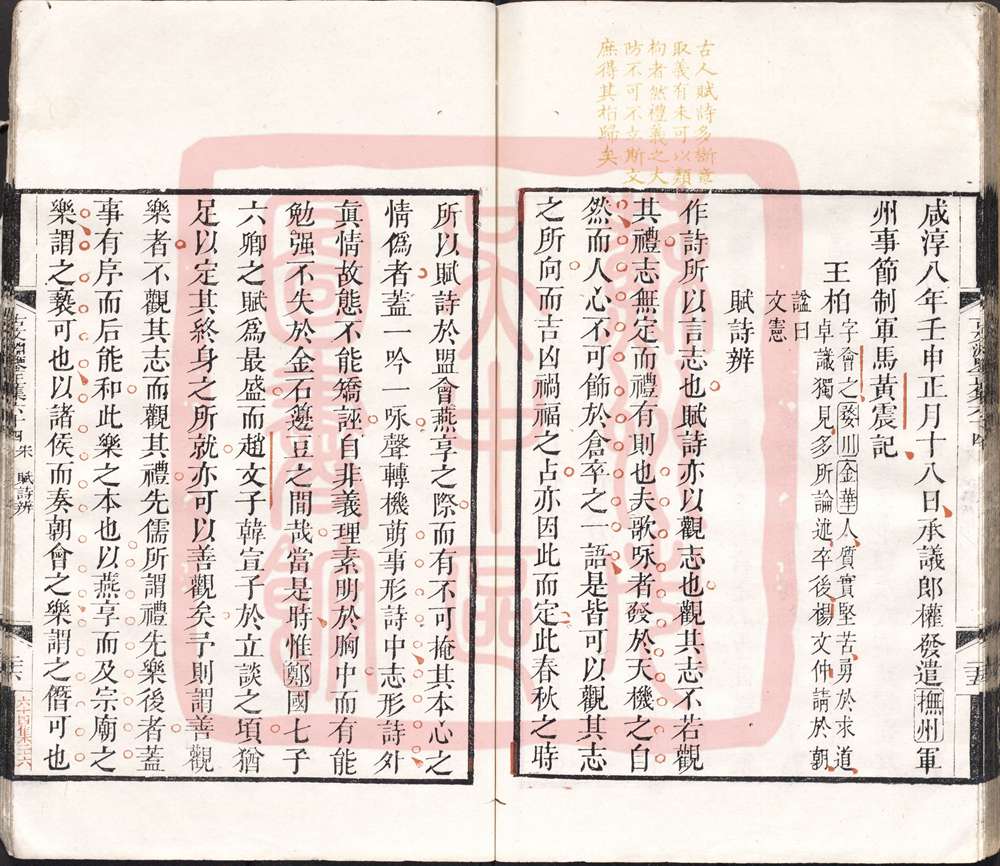 古人賦詩多斷章
取義有未可以類
拘者然禮義之大
防不可不古斯文
庶得其指歸矣
咸淳八年壬申正月十八日承議郎權發遣撫州軍
州事節制軍馬黃震記
王柏
字會之婺川金華人質實堅苦勇於求道
卓識獨見多所論述卒後楊文仲請於朝
諡曰
文憲
賦詩辨
作詩所以言志也賦詩亦以觀志也觀其志不若觀
其禮志無定而禮有則也夫歌咏者發於天機之自
然而人心不可飾於倉卒之一語是皆可以觀其志
之所向而吉凶禍福之占亦因此而定此春秋之時
所以賦詩於盟會燕享之際而有不可掩其本心之
情僞者蓋一吟一咏聲轉機萌事形詩中志形詩外
眞情故態不能矯誣自非義理素明於胸中而有能
勉强不失於金石籩豆之間哉當是時惟鄭國七子
六卿之賦爲最盛而趙文子韓宣子於立談之頃猶
足以定其終身之所就亦可以善觀矣予則謂善觀
樂者不觀其志而觀其禮先儒所謂禮先樂後者蓋
事有序而后能和此樂之本也以燕享而及宗廟之
樂謂之褻可也以諸侯而奏朝會之樂謂之僭可也
賦詩辨